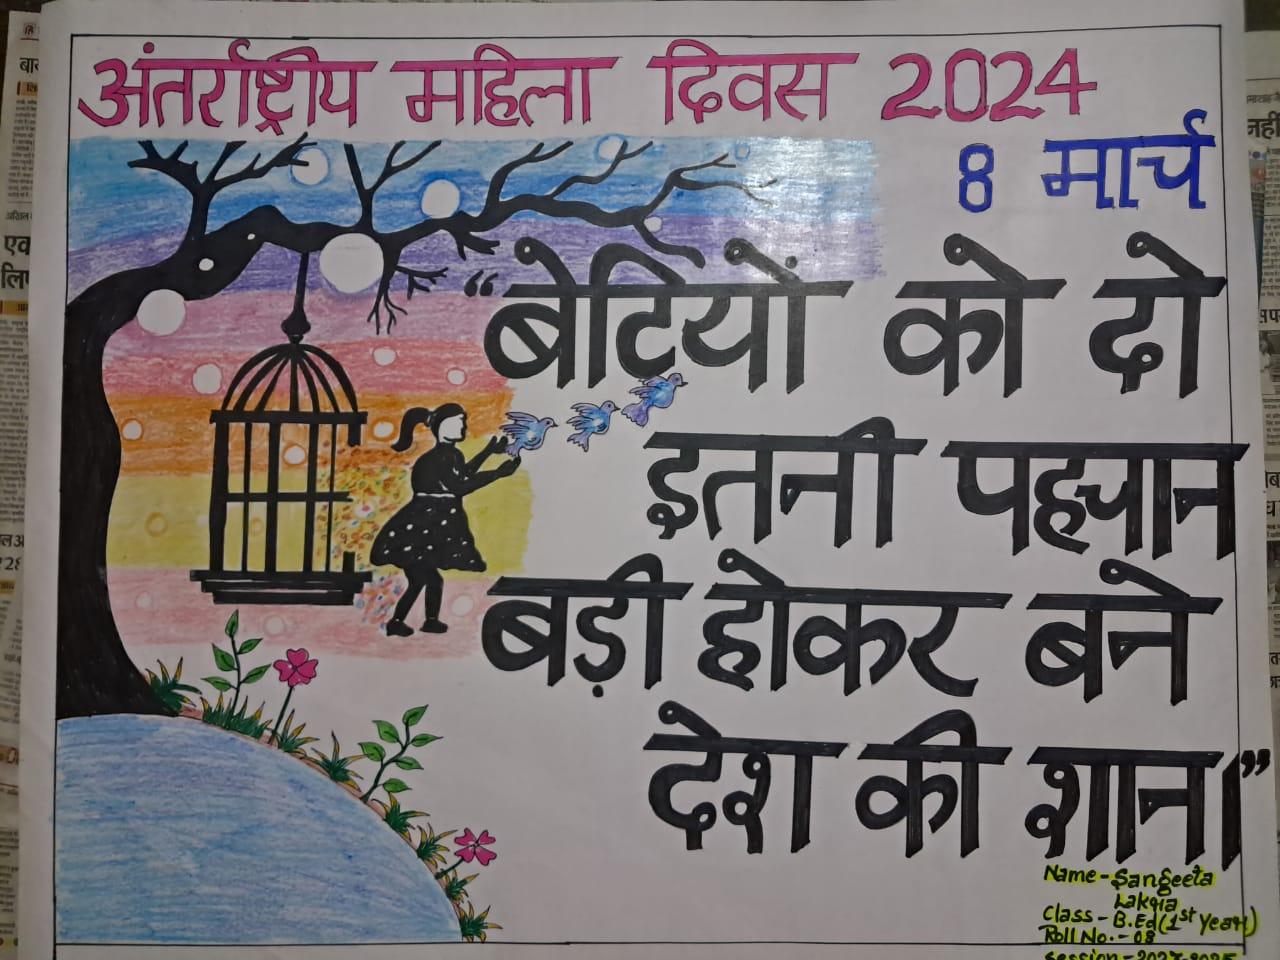 अंतर्राष्ट्रीय महिला दिवस 2024
8 मार्च
“बेटियों को दो
इतनी पहचान
बड़ी होकर बने
देश की शान।”
Name - Sangeeta
Lakqia
Class - B.Ed (1st Year)
Roll No. - 08